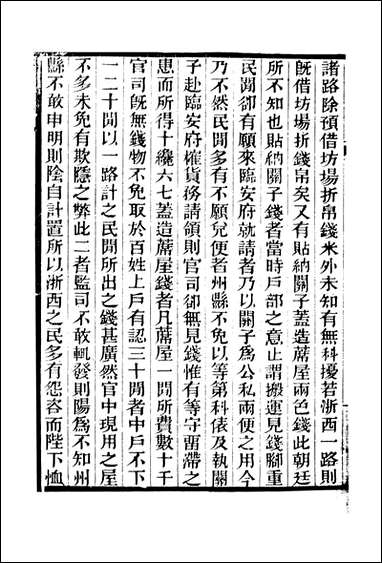 諸路除預借坊場折帛錢米外未知有無科擾若浙西一路則
旣借坊場折錢帛矣又有貼納關子蓋造蓆屋兩色錢此朝廷
所不知也貼納關子錢者當時戶部之意止謂搬運見錢腳重
民閒卻有願來臨安府就請者乃以關子爲公私兩便之用今
乃不然民閒多有不願兌便者州縣不免以等第科俵及執關
子赴臨安府榷貨務請領則官司卻無見錢惟有等守畱滯之
患而所得十纔六七蓋造蓆屋錢者凡蓆屋一閒所費數十千
官司旣無錢物不免取於百姓上戶有認三十閒者中戶不下
一二十閒以一路計之民閒所出之錢甚廣然官中現用之屋
不多未免有欺隱之弊此二者監司不敢輒發則陽爲不知州
縣不敢申明則陰自計置所以浙西之民多有怨咨而陛下恤